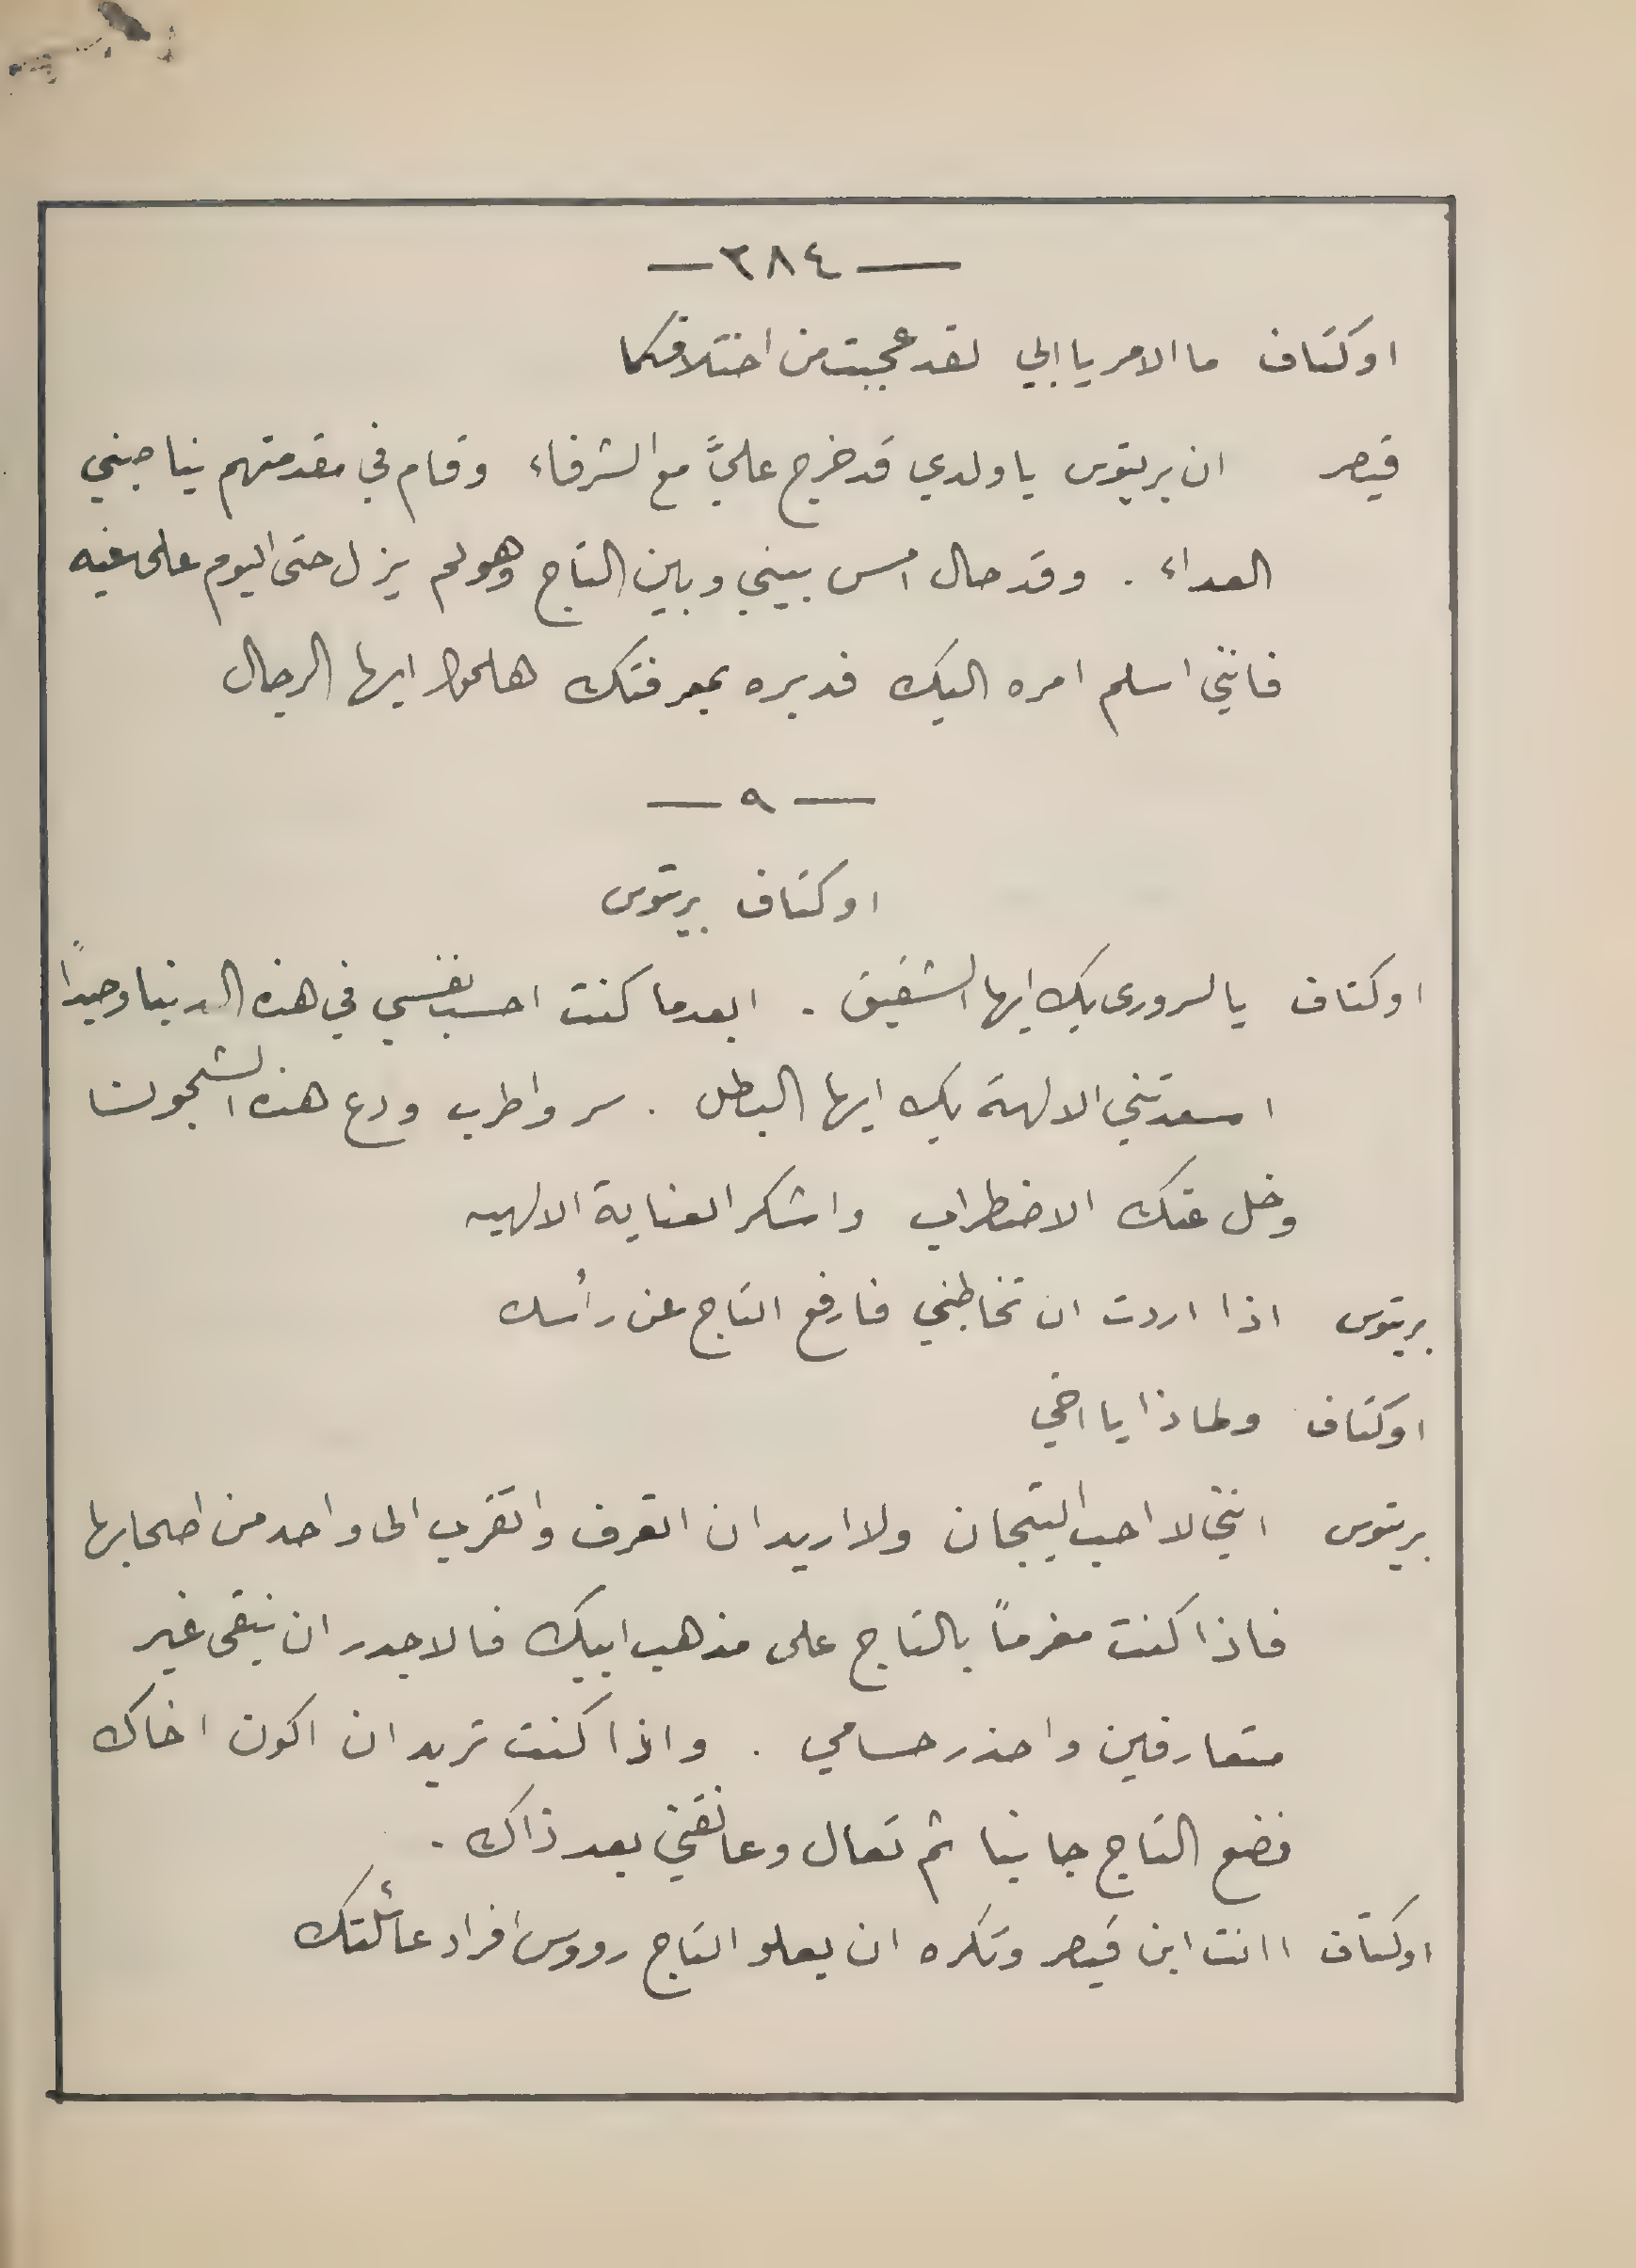 — ٢٨٤ —
اوكتاف ما الامر يا ابي لقد عجبت من اختلافكما
قيصر ان بريتوس يا ولدي قد خرج عليَّ مع الشرفاء وقام في مقدمتهم يناصبني
العداء . وقد حال امس بيني وبين التاج وهو لم يزل حتى اليوم على غيه
فانني اسلم امره اليك فدبره بمعرفتك هلموا ايها الرجال
— ٩ —
اوكتاف بريتوس
اوكتاف يا لسروري بك ايها الشقيق . ابعد ما كنت احسب نفسي في هذه الدنيا وحيداً
اسعدتني الالهة بك ايها البطل . سر واطرب ودع هذه الشجون
وخل عنك الاضطراب واشكر العناية الالهيه
بريتوس اذا اردت ان تخاطبني فارفع التاج عن رأسك
اوكتاف ولماذا يا اخي
بريتوس انني لا احب التيجان ولا اريد ان اتعرف واتقرب الى واحد من اصحابها
فاذا كنت مغرماً بالتاج على مذهب ابيك فالاجدر ان نبقى غير
متعارفين واحذر حسامي . واذا كنت تريد ان اكون اخاك
فضع التاج جانبا ثم تعال وعانقني بعد ذاك .
اوكتاف اانت ابن قيصر وتكره ان يعلو التاج رووس افراد عائلتك